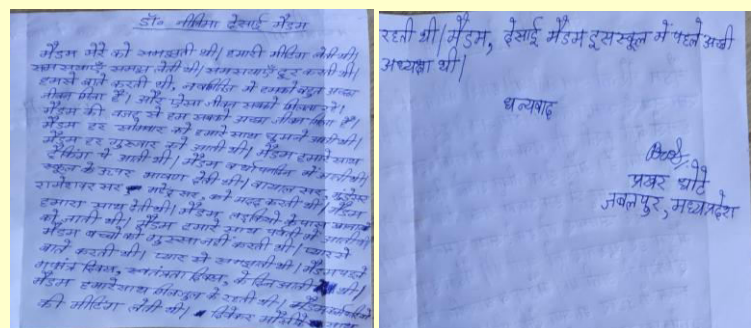 डॉ. नीलिमा देसाई मैडम
मैडम मेरे को समझाती थी। हमारी मीटिंग लेती थी।
समस्याएँ समझ लेती थी। समस्याएँ दूर करती थी।
हमसे बाते करती थी, में हमको बहुत अच्छा
जीवन मिला है। और ऐसा जीवन सबको मिलता रहे।
मैडम की वजह से हम सबको अच्छा जीवन मिला है।
मैडम हर सोमवार को हमारे साथ घूमने आती थी।
मैडम हर गुरुवार को आती थी। मैडम हमारे साथ
ट्रेकिंग पे आती थी। मैडम में आती थी।
स्कूल के ऊपर भाषण देती थी। सर,
रामेश्वर सर, सर, को मदद करती थी। मैडम
हमारा साथ देती थी। मैडम लड़कियों के पास
को जाती थी। मैडम हमारे साथ में आती थी।
मैडम बच्चों को गुस्सा नहीं करती थी। प्यार से
बाते करती थी। प्यार से समझाती थी। मैडम
दिवस, स्वतंत्रता दिवस, के दिन आती थी।
मैडम हमारे साथ मिलजुल के रहती थी। मैडम
की मीटिंग लेती थी।
रहती थी। मैडम, देसाई मैडम इस स्कूल में पहले अच्छी
अध्यक्षा थी।
धन्यवाद
प्रखर
जबलपुर, मध्यप्रदेश